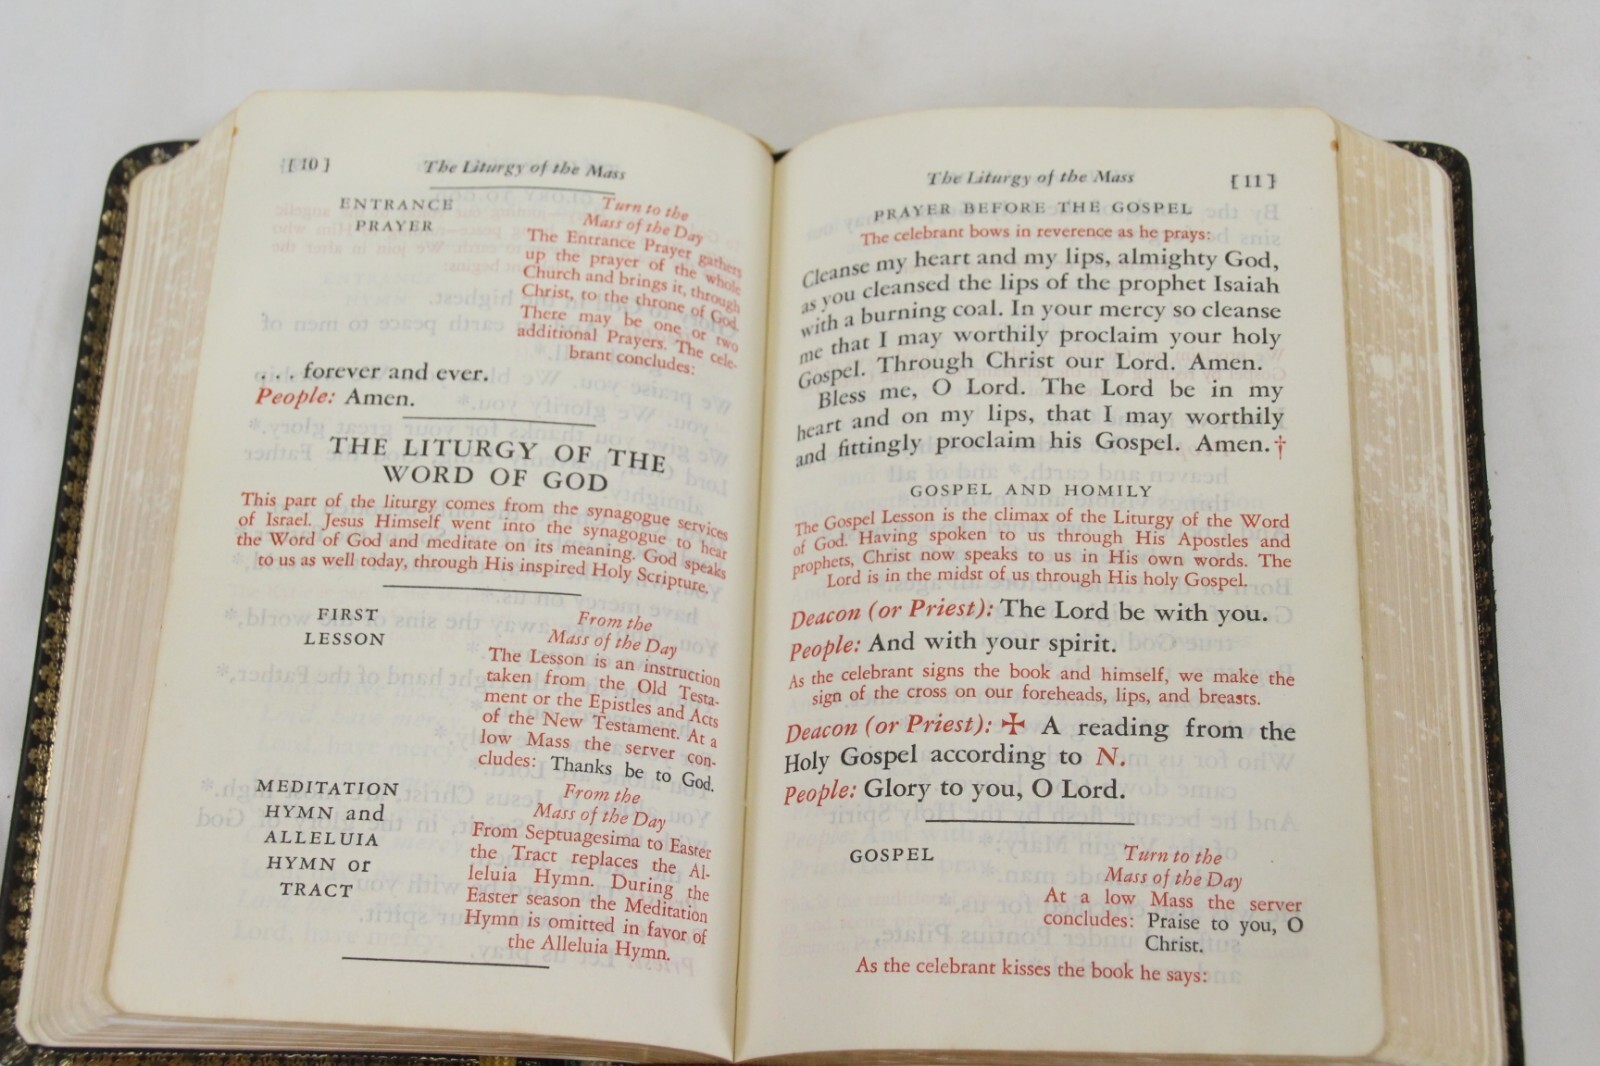 [ 10 ]
The Liturgy of the Mass
ENTRANCE
PRAYER
Turn to the
Mass of the Day
The Entrance Prayer gathers
up the prayer of the whole
Church and brings it, through
Christ, to the throne of God.
There may be one or two
additional Prayers. The cele-
brant concludes:
. . . forever and ever.
People: Amen.
THE LITURGY OF THE
WORD OF GOD
This part of the liturgy comes from the synagogue services
of Israel. Jesus Himself went into the synagogue to hear
the Word of God and meditate on its meaning. God speaks
to us as well today, through His inspired Holy Scripture.
FIRST
LESSON
From the
Mass of the Day
The Lesson is an instruction
taken from the Old Testa-
ment or the Epistles and Acts
of the New Testament. At a
low Mass the server con-
cludes: Thanks be to God.
MEDITATION
HYMN and
ALLELUIA
HYMN or
TRACT
From the
Mass of the Day
From Septuagesima to Easter
the Tract replaces the Al-
leluia Hymn. During the
Easter season the Meditation
Hymn is omitted in favor of
the Alleluia Hymn.
The Liturgy of the Mass
[ 11 ]
PRAYER BEFORE THE GOSPEL
The celebrant bows in reverence as he prays:
Cleanse my heart and my lips, almighty God,
as you cleansed the lips of the prophet Isaiah
with a burning coal. In your mercy so cleanse
me that I may worthily proclaim your holy
Gospel. Through Christ our Lord. Amen.
Bless me, O Lord. The Lord be in my
heart and on my lips, that I may worthily
and fittingly proclaim his Gospel. Amen.†
GOSPEL AND HOMILY
The Gospel Lesson is the climax of the Liturgy of the Word
of God. Having spoken to us through His Apostles and
prophets, Christ now speaks to us in His own words. The
Lord is in the midst of us through His holy Gospel.
Deacon (or Priest): The Lord be with you.
People: And with your spirit.
As the celebrant signs the book and himself, we make the
sign of the cross on our foreheads, lips, and breasts.
Deacon (or Priest): ✠ A reading from the
Holy Gospel according to N.
People: Glory to you, O Lord.
GOSPEL
Turn to the
Mass of the Day
At a low Mass the server
concludes: Praise to you, O
Christ.
As the celebrant kisses the book he says: